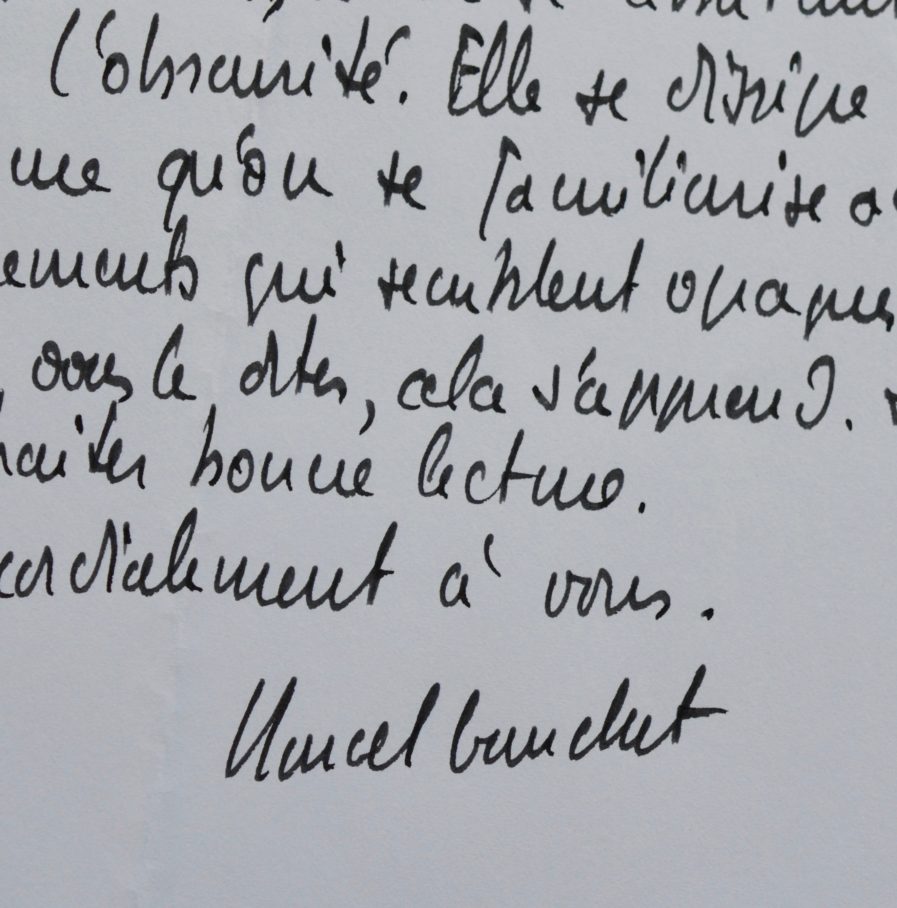 l'obscurité. Elle se dissipe
qu'on se familiarise
qui semblent opaques
, vous le dites, cela s'apprend.
bonne lecture.
cordialement à vous.
Marcel Gauchet